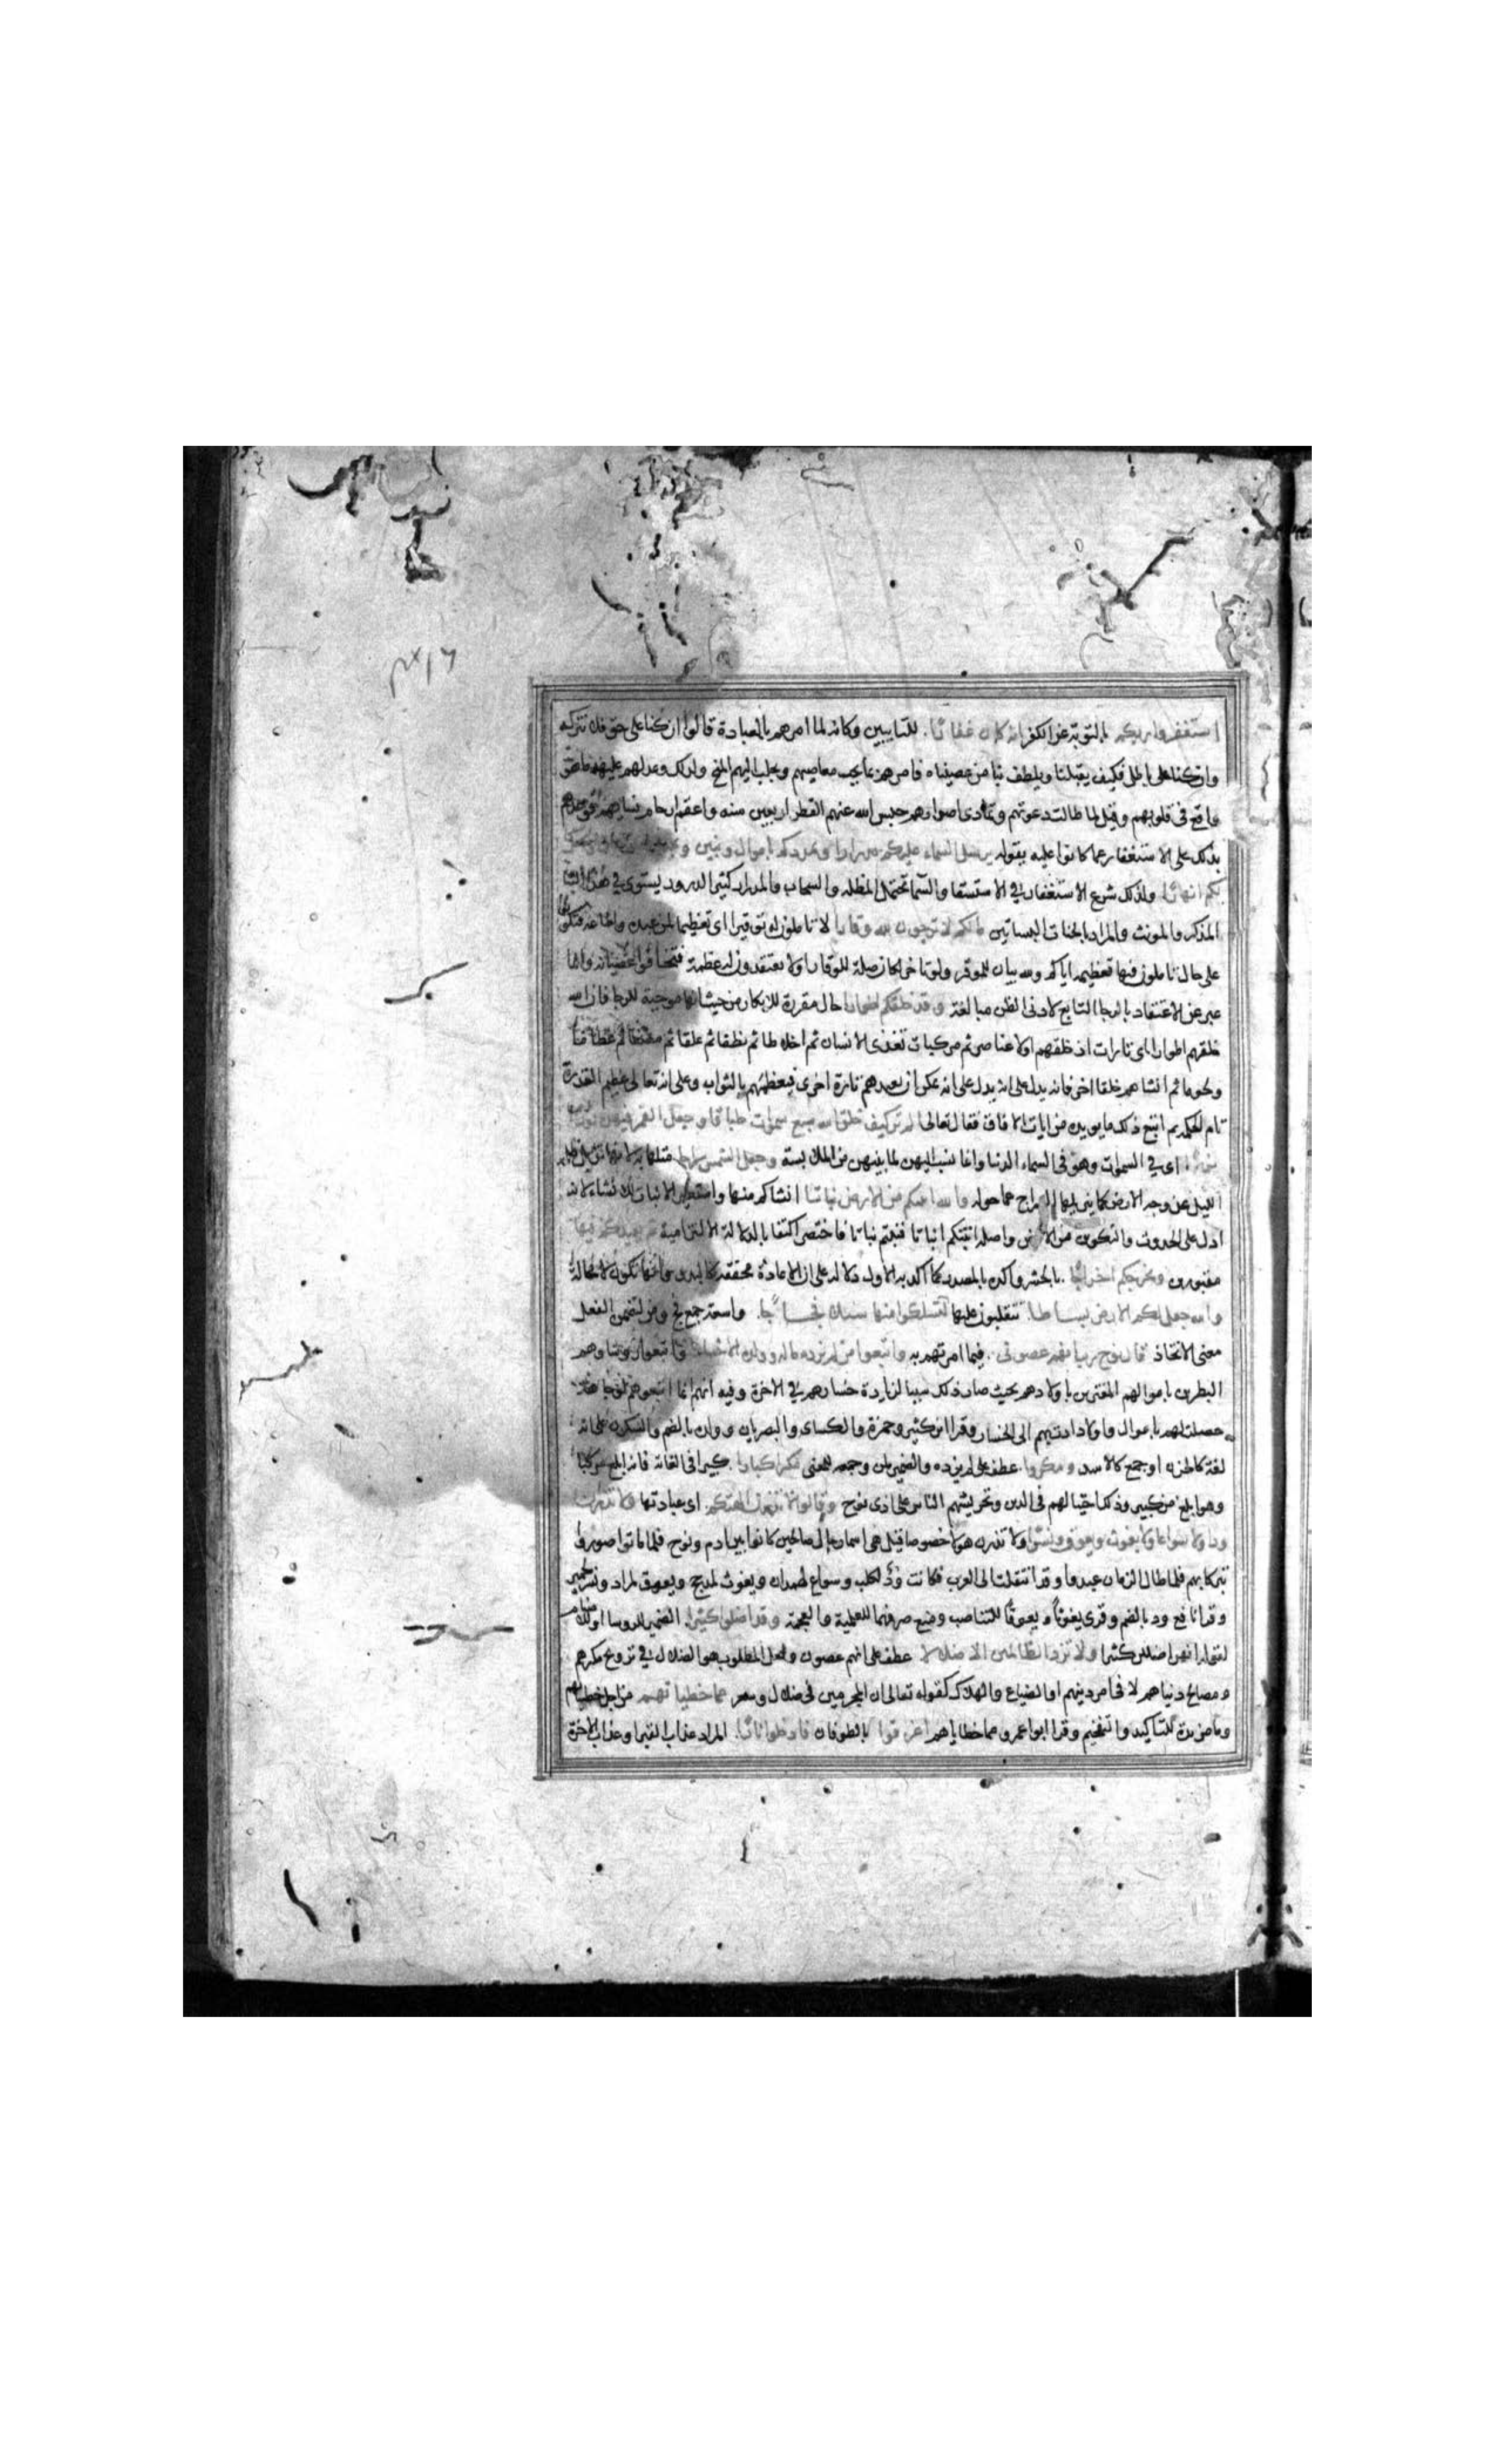 استغفروا ربكم بالتوبة عن الكفر انه كان غفارا. للتايبين وكانه لما امرهم بالعبادة قالوا ان كنا على حق فلا نتركه
وان كنا على باطل فكيف يقبلنا ويلطف بنا من عصيناه فامرهم بما يجب معاصيهم ويجلب اليهم المنح ولذلك وعدلهم عليه ما هو
واقع في قلوبهم وقيل لما طالت دعوتهم وتمادى اصرارهم حبس الله عنهم القطر اربعين سنه واعقم ارحام نسايهم فوعدهم
بذلك على الاستغفار عما كانوا عليه بقوله يرسل السماء عليكم مدرارا ويمددكم باموال وبنين ويجعل لكم جنات ويجعل
لكم انهارا ولذلك شرع الاستغفار في الاستسقا والسما تحتمل المظله والسحاب والمدرار كثير الدرور يستوي في هذا البناء
المذكر والمونث والمراد بالجنات البساتين مالكم لا ترجون لله وقارا لا تاملون له توقيرا اي تعظيما لمن عبده واطاعه فتكونوا
على حال تاملون فيها تعظيمه اياكم ولله بيان للموقر ولو تاخر لكان صلة للوقار او لا تعتقدون له عظمة فتخافوا عصيانه وانما
عبر عن الاعتقاد بالرجا التابع لادنى الظن مبالغة وقد خلقكم اطوارا حال مقررة للانكار من حيث انها موجبة للرجا فان الله
خلقهم اطوارا اي تارات اذ خلقهم اولا عناصر ثم مركبات تغذى الانسان ثم اخلاطا ثم نطفا ثم علقا ثم مضغا ثم عظاما
ولحوما ثم انشاهم خلقا اخر فانه يدل على انه يدل على انه يمكن ان يعيدهم تارة اخرى فيعظمهم بالثواب وعلى انه تعالى عظيم القدرة
تام الحكمة ثم اتبع ذلك ما يويده من ايات الافاق فقال تعالى الم تر كيف خلق الله سبع سموات طباقا وجعل القمر فيهن
نورا. اي في السموات وهو في السماء الدنيا وانما نسب اليهن لما بينهن من الملابسة وجعل الشمس سراجا مثلها به لانها تزيل ظلمة
الليل عن وجه الارض كما يزيلها السراج عما حوله والله انبتكم من الارض نباتا انشاكم منها واستعير الانبات للانشاء لانه
ادل على الحدوث والتكون من الارض واصله انبتكم انباتا فنبتم نباتا فاختصر اكتفا بالدلالة الالتزامية ثم يعيدكم فيها
مقبورين ويخرجكم اخراجا. بالحشر واكده بالمصدر كما اكد به الاول دلالة على ان الاعادة محققة كالبدء وانها تكون لا محالة
والله جعل لكم الارض بساطا. تتقلبون عليها لتسلكوا منها سبلا فجاجا. واسعة جمع فج ومن لتضمن الفعل
معنى الاتخاذ قال نوح رب انهم عصوني. فيما امرتهم به واتبعوا من لم يزده ماله وولده الا خسارا واتبعوا روساوهم
البطرين باموالهم المغترين باولادهم بحيث صار ذلك سببا لزيادة خسارهم في الاخرة وفيه انهم انما اتبعوهم لوجاهة
حصلت لهم باموال واولاد ادت بهم الى الخسار وقرا ابن كثير وحمزة والكساى والبصريان وولده بالضم والسكون على انه
لغة كالحزن او جمع كالاسد ومكروا. عطف على لم يزده والضمير لمن وجمعه للمعنى مكرا كبارا. كبيرا في الغاية فانه ابلغ من كبار
وهو ابلغ من كبير وذلك احتيالهم في الدين وتحريشهم الناس على اذى نوح وقالوا لا تذرن الهتكم. اي عبادتها ولا تذرن
ودا ولا سواعا ولا يغوث ويعوق ونسرا ولا تذرن هولاء خصوصا قيل هي اسما رجال صالحين كانوا بين ادم ونوح فلما ماتوا صوروا
تبركا بهم فلما طال الزمان عبدوا وقد انتقلت الى العرب فكانت ود لكلب وسواع لهمدان ويغوث لمذحج ويعوق لمراد ونسر لحمير
وقرا نافع ودا بالضم وقرى يغوثا ويعوقا للتناصب ومنع صرفهما للعلمية والعجمة وقد اضلوا كثيرا. الضمير للروسا او للاصنام
لقوله انهن اضللن كثيرا ولا تزد الظالمين الا ضلالا عطف على انهم عصون ولعل المطلوب هو الضلال في ترويج مكرهم
ومصالح دنياهم لا في امر دينهم او الضياع والهلاك كقوله تعالى ان المجرمين في ضلال وسعر مما خطياتهم من اجل خطياتهم
وما مزيدة للتاكيد والتفخيم وقرا ابو عمرو مما خطاياهم اغرقوا بالطوفان فادخلوا نارا. المراد عذاب القبر او عذاب الاخرة